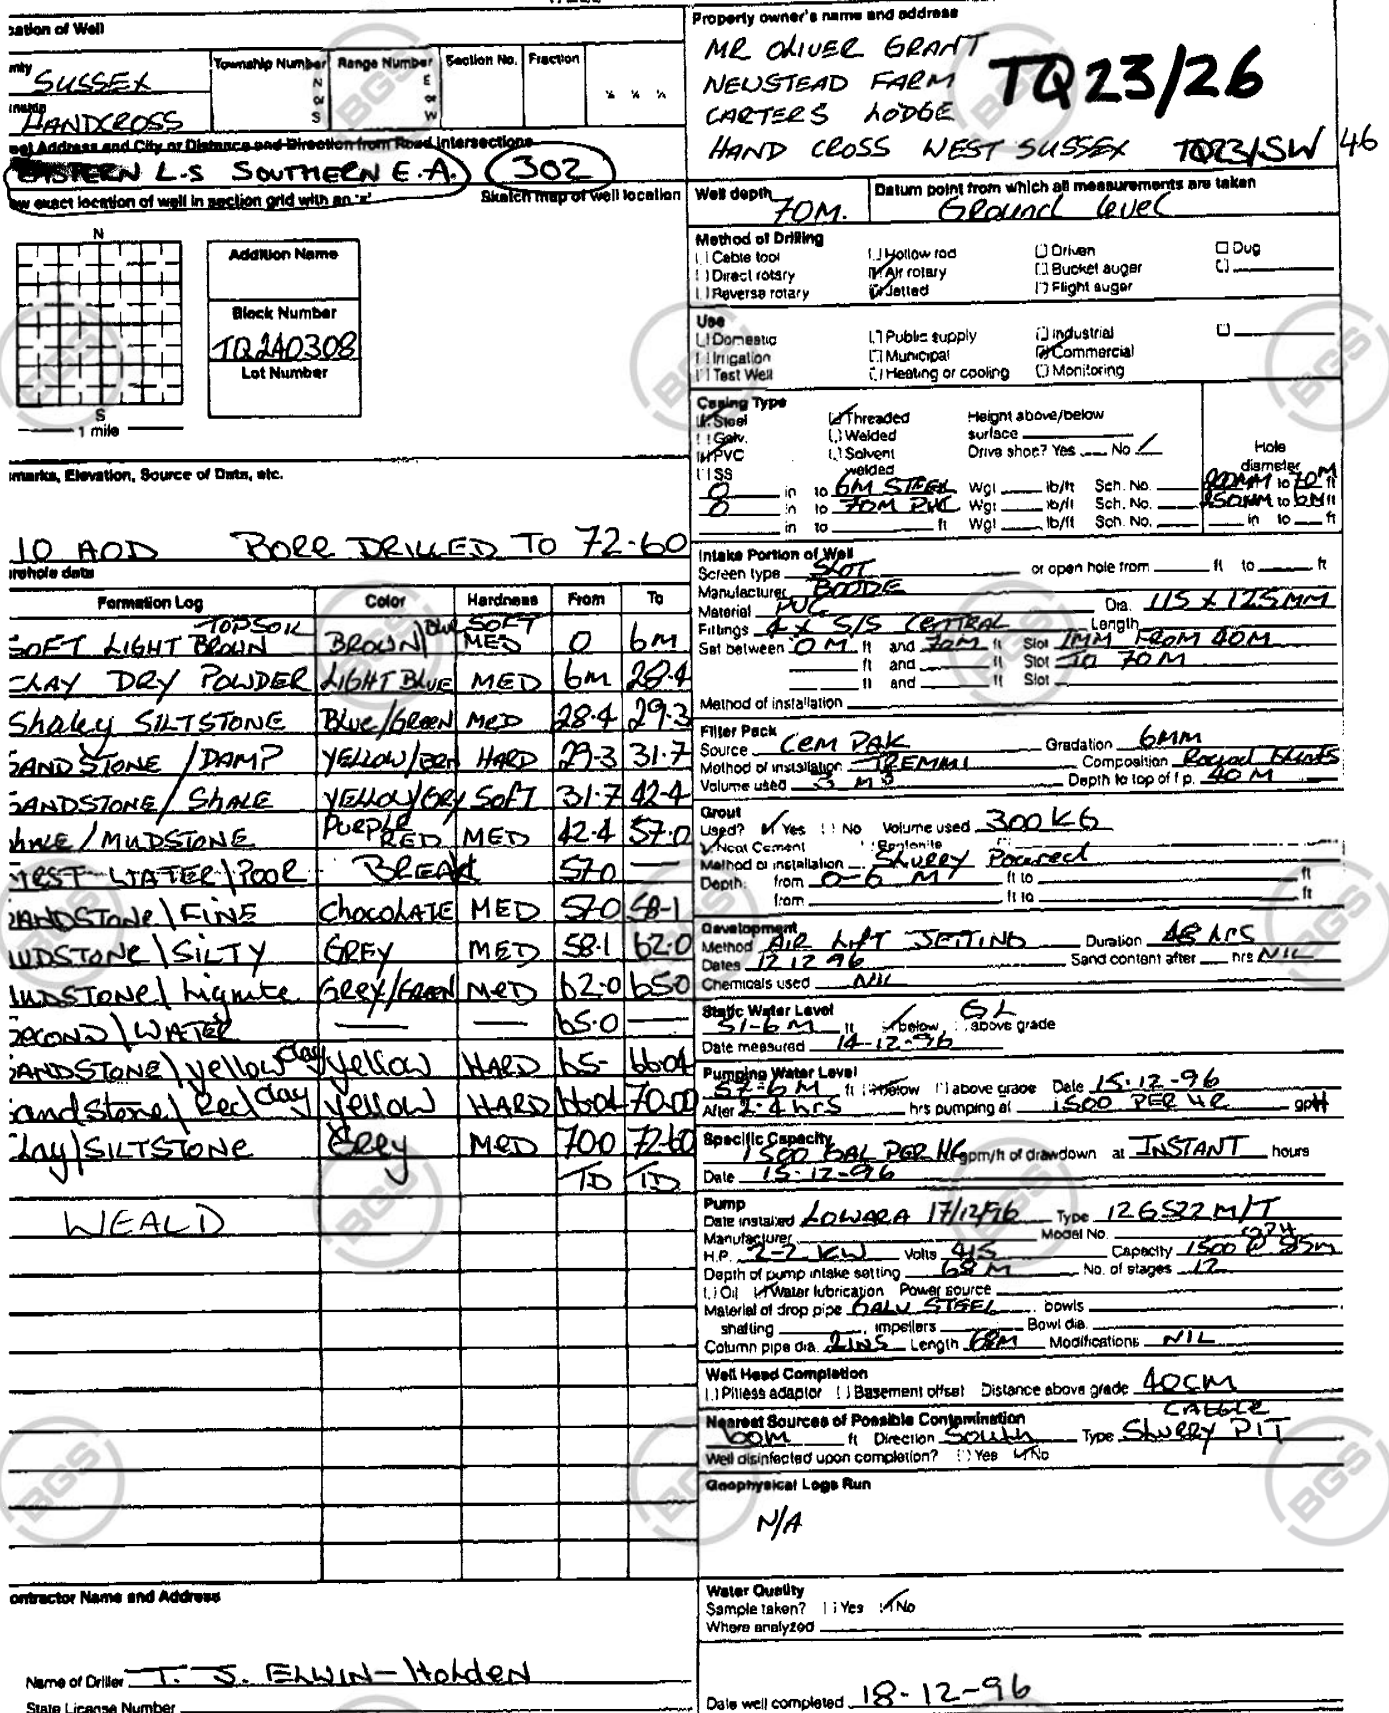 ation of Well
nty SUSSEX
Township Number N or S
Range Number E or W
Section No.
Fraction
¼ ¼ ¼
HANDCROSS
Address and City or Distance and Direction from Road Intersections
EASTERN L.S SOUTHERN E.A. 302
ow exact location of well in section grid with an 'x'
Sketch map of well location
N
S
1 mile
Addition Name
Block Number
TQ240308
Lot Number
marks, Elevation, Source of Data, etc.
10 AOD BORE DRILLED TO 72-60
rehole data
Formation Log Color Hardness From To
TOPSOIL
SOFT LIGHT BROWN BROWN/BLUE SOFT MED 0 6M
CLAY DRY POWDER LIGHT BLUE MED 6M 28.4
Shaley SILTSTONE Blue/GREEN MED 28.4 29.3
SANDSTONE /DAMP YELLOW/BRN HARD 29-3 31.7
SANDSTONE/ ShALE YELLOW/GRY SOFT 31.7 42-4
hALE/MUDSTONE PURPLE RED MED 42.4 57.0
FIRST WATER/POOR BREAK 57.0 —
SANDSTONE/FINE ChocoLATE MED 57.0 58-1
UDSTONE/SILTY GREY MED 58.1 62.0
UDSTONE/ Lignite GREY/GREEN MED 62.0 65.0
SECOND/WATER — — 65.0 —
SANDSTONE/yellow clay yellow HARD 65- 66.04
Sandstone/ Red clay yellow HARD 66.04 70.00
Clay/SILTSTONE Grey MED 70.0 72-60
TD TD
WEALD
ontractor Name and Address
Name of Driller T. J. ELWIN-Holden
State License Number
Property owner's name and address
MR OLIVER GRANT
NEWSTEAD FARM
CARTERS LODGE
HAND CROSS WEST SUSSEX
TQ23/26
TQ23/SW 46
Well depth 70M.
Datum point from which all measurements are taken
Ground level
Method of Drilling
Cable tool Hollow rod Driven Dug
Direct rotary Air rotary Bucket auger
Reverse rotary Jetted Flight auger
Use
Domestic Public supply Industrial
Irrigation Municipal Commercial
Test Well Heating or cooling Monitoring
Casing Type
Steel Threaded Height above/below
Galv. Welded surface
PVC Solvent welded Drive shoe? Yes No
SS Hole diameter
0 in to 6M STEEL Wgt lb/ft Sch. No. 200MM to 70M ft
0 in to 70M PVC Wgt lb/ft Sch. No. 250MM to 6M ft
in to ft Wgt lb/ft Sch. No. in to ft
Intake Portion of Well
Screen type SLOT or open hole from ft to ft
Manufacturer BOODE
Material PVC Dia. 115 X 125MM
Fittings 4 X S/S CENTRAL Length
Set between 0 M ft and 70M ft Slot 1MM FROM 40M
ft and ft Slot TO 70M
ft and ft Slot
Method of installation
Filter Pack
Source CEM PAK Gradation 6MM
Method of installation TREMMI Composition Round
Volume used 3 M3 Depth to top of f.p. 40 M
Grout
Used? Yes No Volume used 300 KG
Neat Cement Bentonite
Method of installation Slurry Poured
Depth: from 0-6 M ft to ft
from ft to ft
Development
Method AIR LIFT JETTING Duration 48 hrs
Dates 12 12 96 Sand content after hrs NIL
Chemicals used NIL
Static Water Level GL
51-6 M ft below above grade
Date measured 14-12-96
Pumping Water Level
57-6 M ft below above grade Date 15-12-96
After 2.4 hrs hrs pumping at 1500 PER HR gpH
Specific Capacity
1500 GAL PER HR gpm/ft of drawdown at INSTANT hours
Date 15-12-96
Pump
Date installed LOWARA 17/12/96 Type 12GS22 M/T
Manufacturer Model No.
H.P. 2-2 KW Volts 415 Capacity 1500 @ 95m
Depth of pump intake setting 68 M No. of stages 12
Oil Water lubrication Power source
Material of drop pipe GALV STEEL bowls
shafting impellers Bowl dia.
Column pipe dia. 2INS Length 68M Modifications NIL
Well Head Completion
Pitless adaptor Basement offset Distance above grade 40CM
Nearest Sources of Possible Contamination
60M ft Direction South Type CATTLE Slurry PIT
Well disinfected upon completion? Yes No
Geophysical Logs Run
N/A
Water Quality
Sample taken? Yes No
Where analyzed
Date well completed 18-12-96